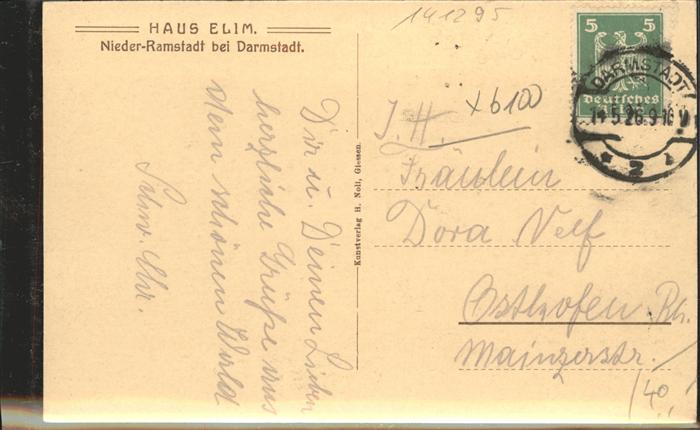 HAUS ELIM.
Nieder-Ramstadt bei Darmstadt.
141295
Dir u. Deinen Lieben
herzliche Grüße aus
dem schönen Wald
Schw. Chr.
Kunstverlag H. Noll, Giessen.
5 5
Deutsches
DARMSTADT
14.5.26.9-10V
* 2 1
xb100
J. H.
Fräulein
Dora Velf
Osthofen Rh.
Mainzerstr.
/40